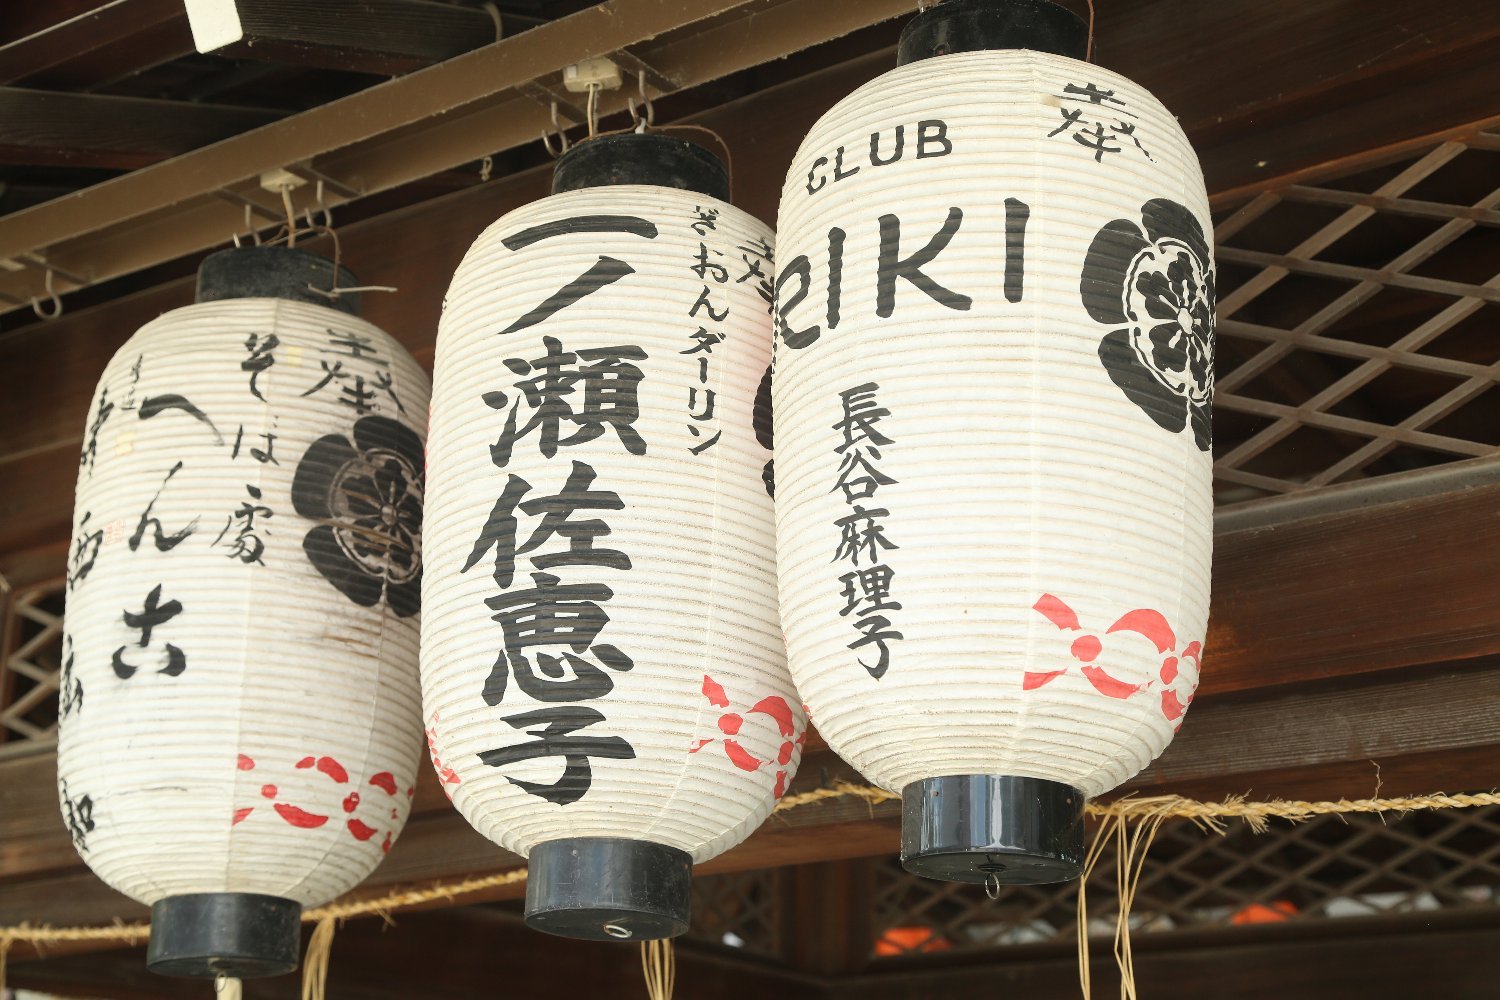 奉
CLUB
EIKI
長谷麻理子
奉
ぎおんダーリン
一ノ瀬佐恵子
奉
そば處
へん古